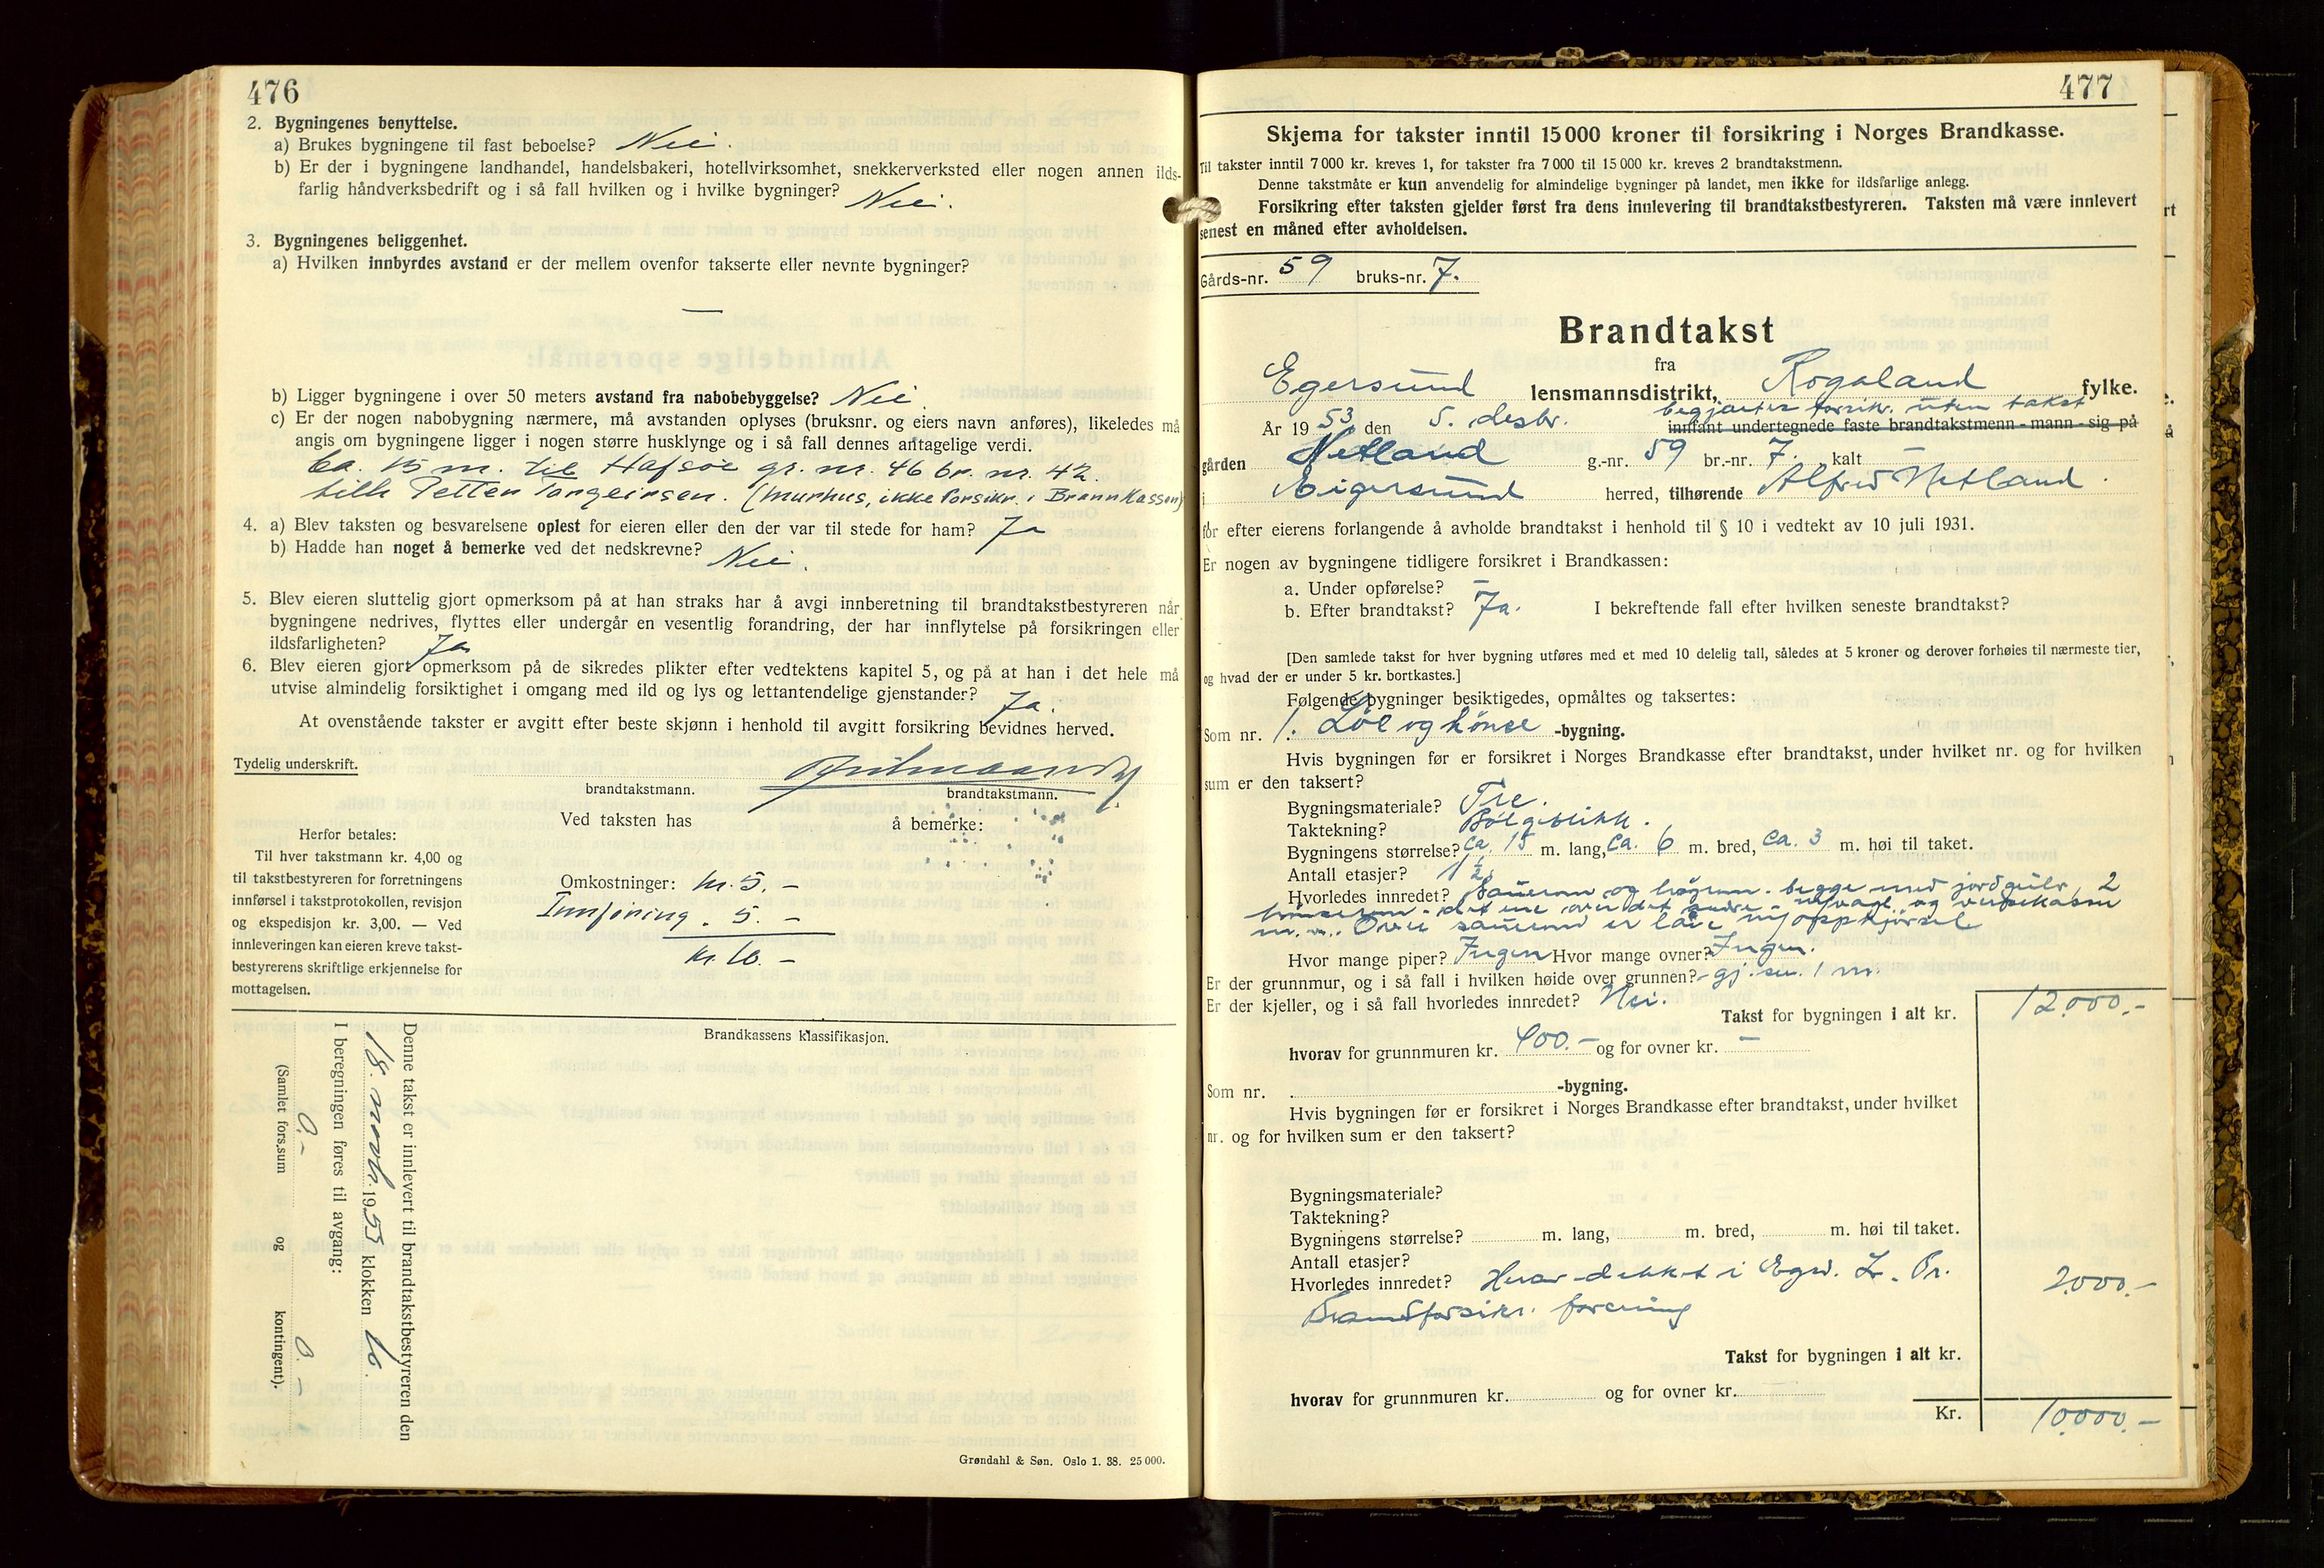 476
2. Bygningenes benyttelse.
a) Brukes bygningene til fast beboelse? Nei.
b) Er der i bygningene landhandel, handelsbakeri, hotellvirksomhet, snekkerverksted eller nogen annen ilds-
farlig håndverksbedrift og i så fall hvilken og i hvilke bygninger? Nei.
3. Bygningenes beliggenhet.
a) Hvilken innbyrdes avstand er der mellem ovenfor takserte eller nevnte bygninger?
—
b) Ligger bygningene i over 50 meters avstand fra nabobebyggelse? Nei.
c) Er der nogen nabobygning nærmere, må avstanden oplyses (bruksnr. og eiers navn anføres), likeledes må
angis om bygningene ligger i nogen større husklynge og i så fall dennes antagelige verdi.
Ca. 15 m. til Hafsøe gr. nr. 46 br. nr. 42.
tilh. Petter Torgeirsen. (murhus, ikke forsikr. i Brannkassen)
4. a) Blev taksten og besvarelsene oplest for eieren eller den der var til stede for ham? Ja
b) Hadde han noget å bemerke ved det nedskrevne? Nei.
5. Blev eieren sluttelig gjort opmerksom på at han straks har å avgi innberetning til brandtakstbestyreren når
bygningene nedrives, flyttes eller undergår en vesentlig forandring, der har innflytelse på forsikringen eller
ildsfarligheten? Ja
6. Blev eieren gjort opmerksom på de sikredes plikter efter vedtektens kapitel 5, og på at han i det hele må
utvise almindelig forsiktighet i omgang med ild og lys og lettantendelige gjenstander? Ja.
At ovenstående takster er avgitt efter beste skjønn i henhold til avgitt forsikring bevidnes herved.
Tydelig underskrift.
brandtakstmann. brandtakstmann.
Ved taksten has å bemerke:
Herfor betales:
Til hver takstmann kr. 4,00 og
til takstbestyreren for forretningens
innførsel i takstprotokollen, revisjon
og ekspedisjon kr. 3,00. — Ved
innleveringen kan eieren kreve takst-
bestyrerens skriftlige erkjennelse for
mottagelsen.
Omkostninger: kr. 5. –
Innføring . 5. –
kr. 10. –
Brandkassens klassifikasjon.
Denne takst er innlevert til brandtakstbestyreren den
18. novbr. 1953 klokken 10.
I beregningen føres til avgang:
0.- 0.-
(Samlet fors.sum og kontingent).
Grøndahl & Søn. Oslo 1. 38. 25 000.
477
Skjema for takster inntil 15 000 kroner til forsikring i Norges Brandkasse.
Til takster inntil 7 000 kr. kreves 1, for takster fra 7 000 til 15 000 kr. kreves 2 brandtakstmenn.
Denne takstmåte er kun anvendelig for almindelige bygninger på landet, men ikke for ildsfarlige anlegg.
Forsikring efter taksten gjelder først fra dens innlevering til brandtakstbestyreren. Taksten må være innlevert
senest en måned efter avholdelsen.
Gårds-nr. 59 bruks-nr. 7.
Brandtakst
fra
Egersund lensmannsdistrikt, Rogaland fylke.
begjærtes forsikr. uten takst
År 1953 den 5. desbr. innfant undertegnede faste brandtakstmenn - mann - sig på
gården Netland g.-nr. 59 br.-nr. 7. kalt —
i Eigersund herred, tilhørende Alfred Netland.
for efter eierens forlangende å avholde brandtakst i henhold til § 10 i vedtekt av 10 juli 1931.
Er nogen av bygningene tidligere forsikret i Brandkassen:
a. Under opførelse? —
b. Efter brandtakst? Ja. I bekreftende fall efter hvilken seneste brandtakst?
[Den samlede takst for hver bygning utføres med et med 10 delelig tall, således at 5 kroner og derover forhøies til nærmeste tier,
og hvad der er under 5 kr. bortkastes.]
Følgende bygninger besiktigedes, opmåltes og taksertes:
Som nr. 1. Løe og hönse -bygning.
Hvis bygningen før er forsikret i Norges Brandkasse efter brandtakst, under hvilket nr. og for hvilken
sum er den taksert?
Bygningsmateriale? Tre.
Taktekning? Bölgeblikk.
Bygningens størrelse? ca. 15 m. lang, ca. 6 m. bred, ca. 3 m. høi til taket.
Antall etasjer? 1 ½
Hvorledes innredet? Sauerom og høyrom - begge med jordgulv, 2
hönserom - det ene over det andre - m/vagl og verpekasser
m. v.. Over sauerom er låve m/oppkjörsel
Hvor mange piper? Ingen Hvor mange ovner? Ingen.
Er der grunnmur, og i så fall i hvilken høide over grunnen? gj. sn. 1 m.
Er der kjeller, og i så fall hvorledes innredet? Nei.
Takst for bygningen i alt kr. 12.000.-
hvorav for grunnmuren kr. 400.- og for ovner kr. —
Som nr. -bygning.
Hvis bygningen før er forsikret i Norges Brandkasse efter brandtakst, under hvilket
nr. og for hvilken sum er den taksert?
Bygningsmateriale?
Taktekning?
Bygningens størrelse? m. lang, m. bred, m. høi til taket.
Antall etasjer?
Hvorledes innredet? Herav dekket i Egrs. L. Br. 2000.-
Brandforsikr. forening
Takst for bygningen i alt kr.
hvorav for grunnmuren kr. og for ovner kr.
Kr. 10.000.-